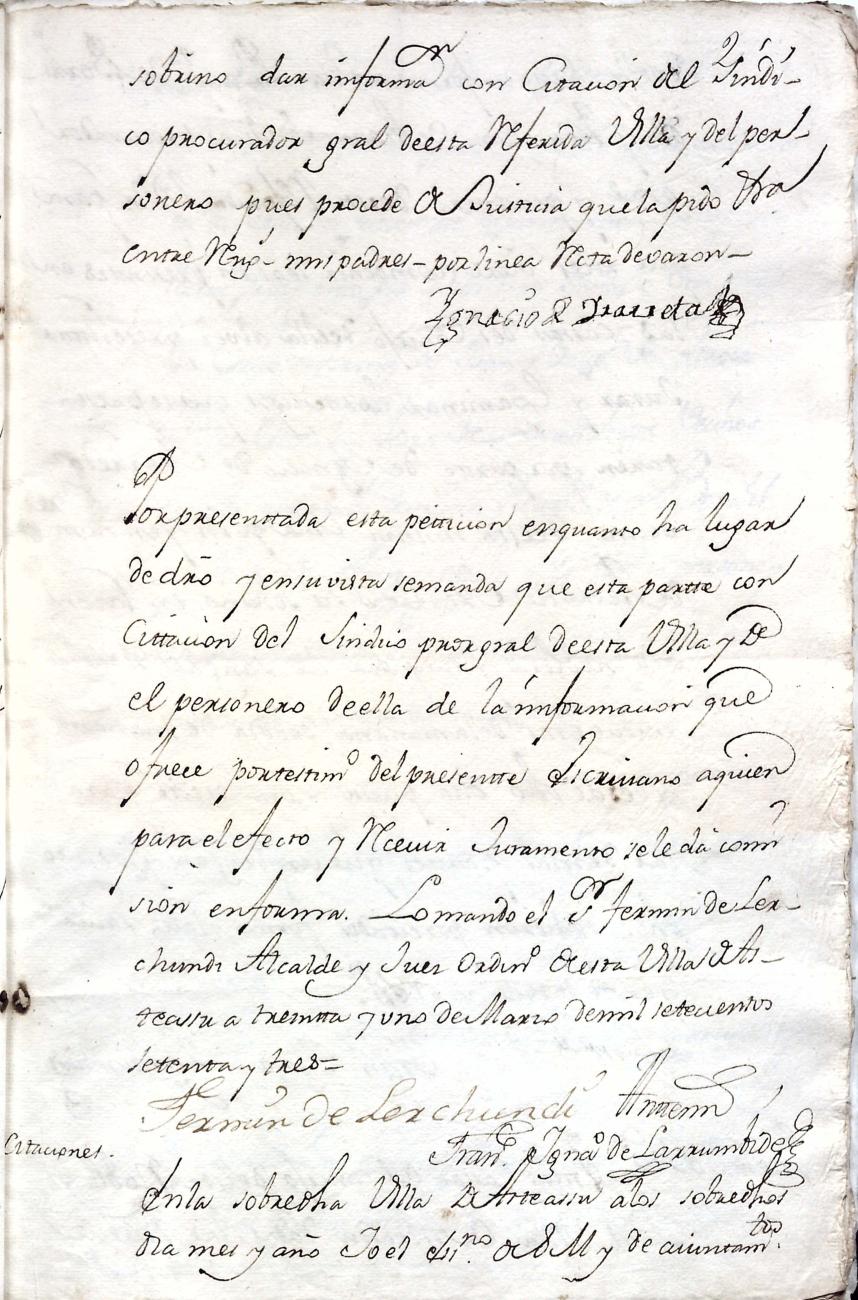 sobrino dar informaⁿ con Citacion del Sindi-
co procurador gral deesta Referida Villa y del per-
sonero pues procede de Justicia que la pido &ra
entre Rengˢ - mis padres - por linea Recta de varon -
Ignacio de Ydarreta
Por presenttada esta petticion enquanto ha lugar
de dr̃o y en su vista se manda que esta partte con
Cittacion del Sindico pror gral deesta Villa y de
el personero deella de la informacion que
ofrece por testimº del presentte Escrivano a quien
para el efecto y Recevir Juramento se le dà comi
sion en forma. Lo mando el Sʳ fermin de Ler-
chundi Alcalde y Juez Ordinº de esta Villa de As-
teassu a treintta y uno de Marzo de mil setecientos
setenta y tres =
Fermin de Lerchundi Antemi
Franᶜᵒ Ignaº de Larrumbide
Citaciones.
En la sobredha Villa de Asteassu a los sobredhos
dia mes y año Yo el Esⁿᵒ de S M y de aiuntamᵗᵒˢ